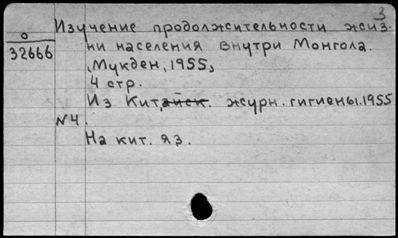 3
Изучение продолжительности жиз-
о
32666
ни населения Внутри Монгола.
Мукден, 1955,
4 стр.
Из Китайск. журн. гигиены. 1955
№4.
На кит. яз.